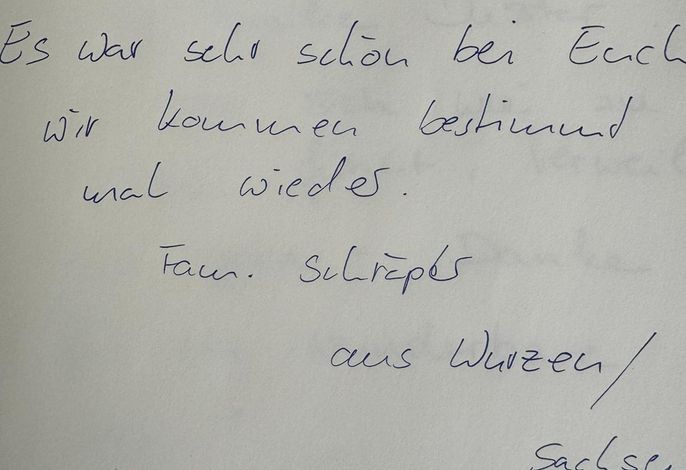 Es war sehr schön bei Euch
wir kommen bestimmd
mal wieder.
Fam. Schräpler
aus Wurzen/
Sachsen